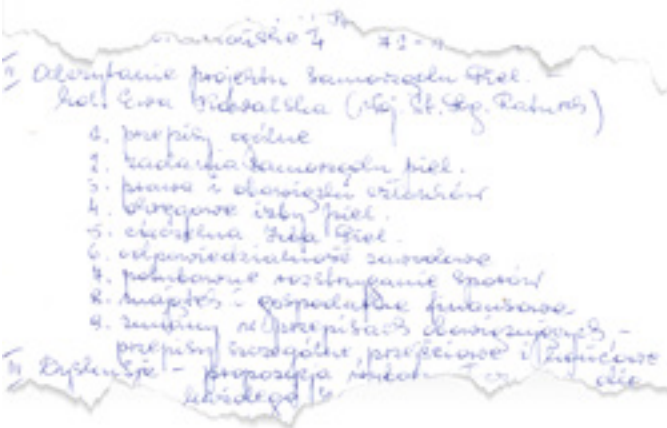 I, Odczytanie projektu Samorządu Piel.
kol. Ewa (Woj. St.
1. przepisy ogólne
2. zadania samorządu piel.
3. prawa i obowiązki członków
4. okręgowe izby piel.
5. naczelna Izba Piel.
6. odpowiedzialność zawodowa
7. polubowne rozstrzyganie sporów
8. majątek i gospodarka finansowa
9. zmiany w przepisach obowiązujących -
przepisy szczególne, przejściowe i końcowe
II Dyskusja - propozycja
każdego